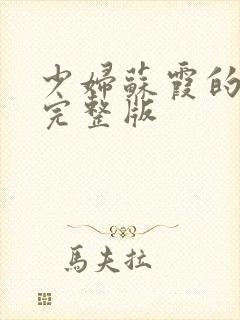 少婦蘇霞的
完整版
馬夫拉